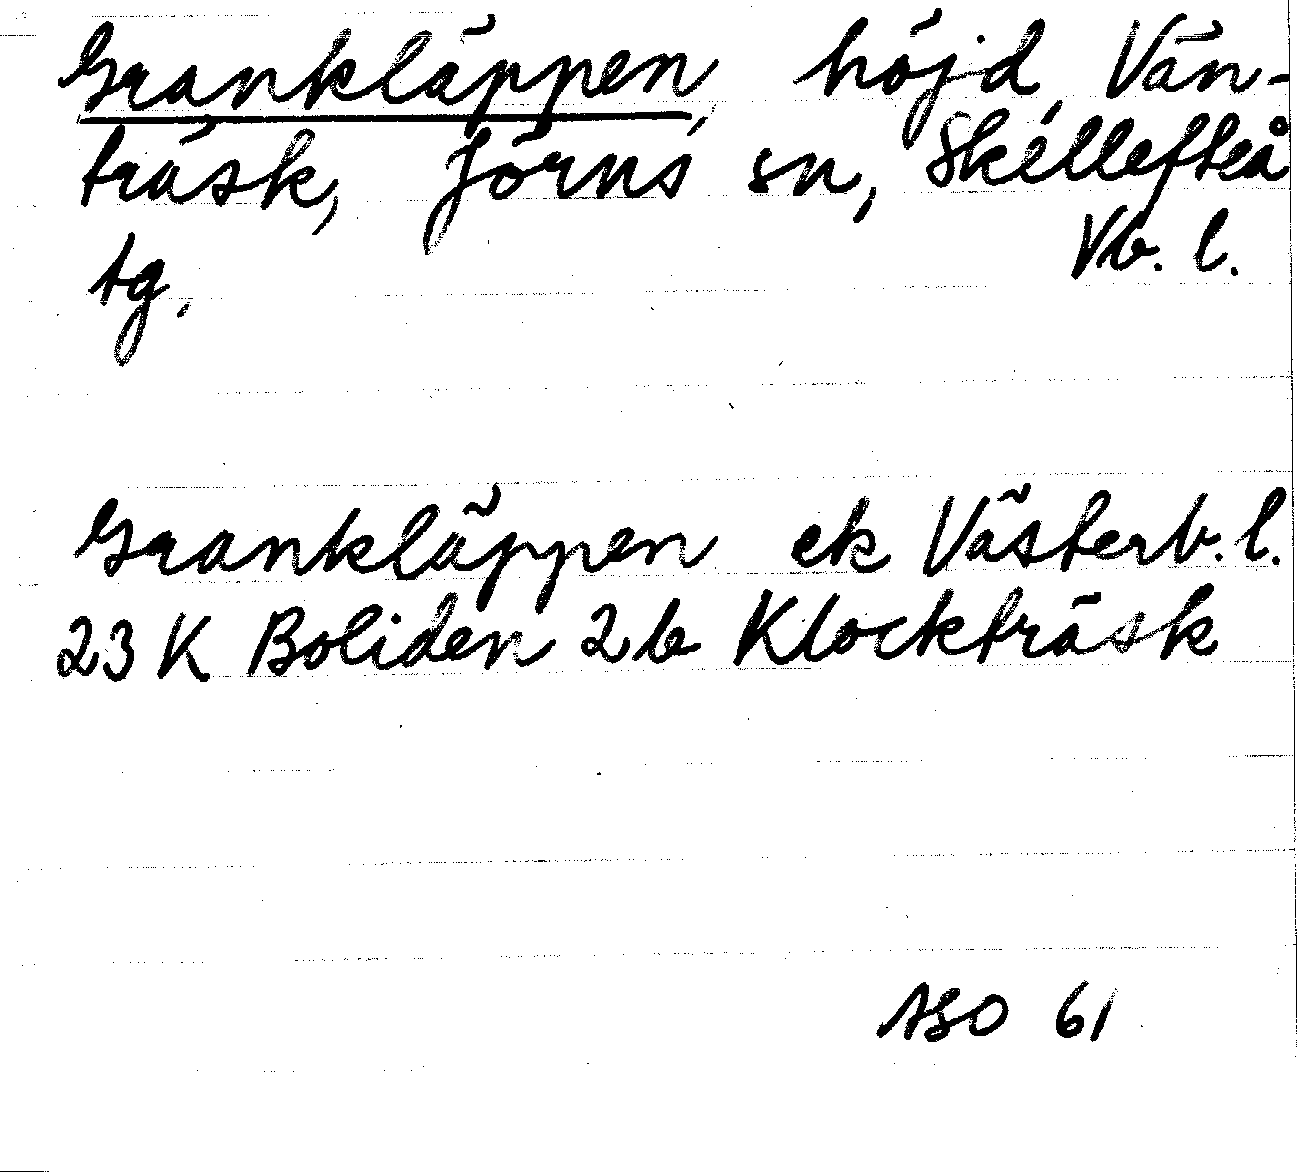 Grankläppen, höjd, Vän-
träsk, Jörns sn, Skellefteå
tg, Vb. l.
Grankläppen ek Västerb. l.
23 K Boliden 2b Klockträsk
ASO 61